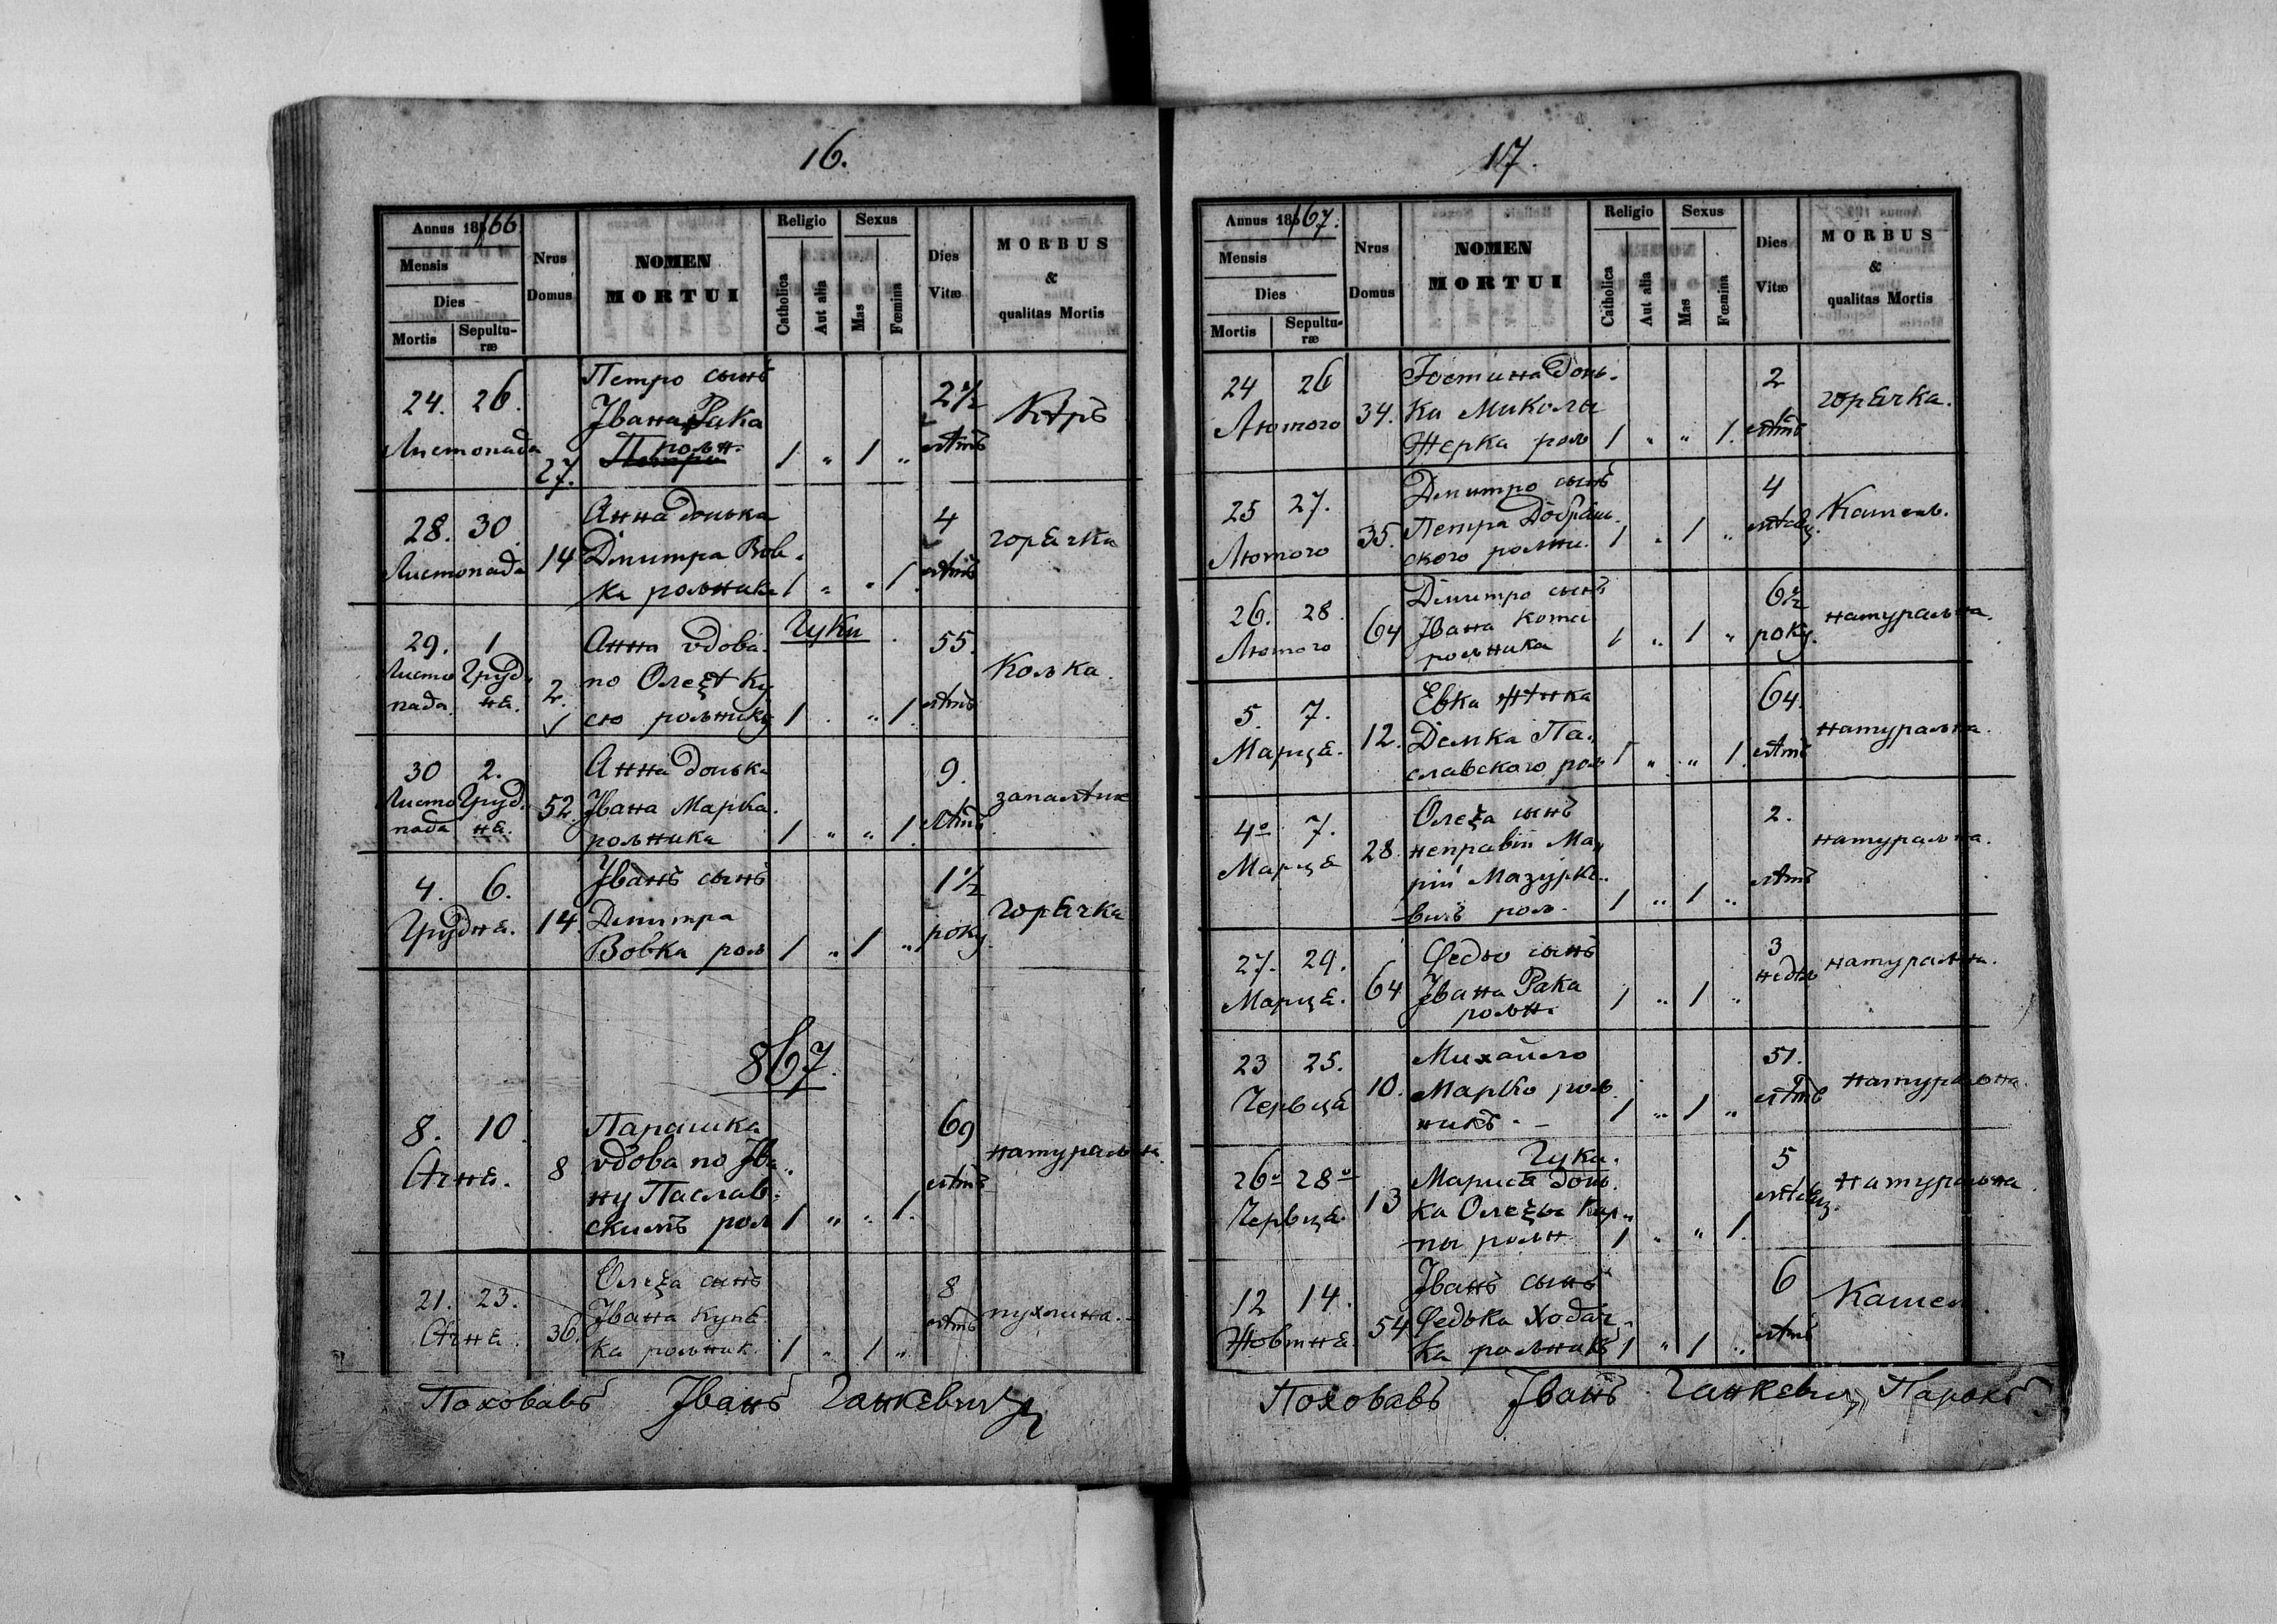 16.
Annus 1866.
Mensis
Dies
Mortis
Sepulturæ
Nrus Domus
NOMEN
MORTUI
Religio
Catholica
Aut alia
Sexus
Mas
Fœmina
Dies Vitæ
MORBUS
&
qualitas Mortis
24. 26.
Листопада
27.
Петро сынъ
Івана Рака
рольн.
1 „ 1 „
2½
лѣтъ
Кѣръ
28. 30.
Листопада
14
Анна донька
Дмитра Вов-
ка рольника
1 „ „ 1.
4
лѣтъ
горячка
29. 1
Листо Груд
пада. ня.
2.
Чуки
Анна вдова
по Олеѯѣ Ку
сю рольнику
1 . „ 1.
55.
лѣтъ
Колька.
30 2.
Листо Груд.
пада ня.
52.
Анна донька
Івана Марка
рольника
1 „ „ 1.
9.
лѣтъ
запалѣнє
4. 6.
Грудня.
14.
Іванъ сынъ
Дмитра
Вовка рол
1 „ 1 „
1½
року
горячка
867.
8. 10.
Сѣчня.
8
Парашка
вдова по Іва
ну Паслав-
скимъ рол
1 „ „ 1.
69
лѣтъ
натуральна.
21. 23.
Сѣчня.
36.
Олеѯа сынъ
Івана Купя
ка рольник.
1 „ 1 „
8
лѣтъ
пухлина.
Поховавъ Іванъ Чанкевичъ
17.
Annus 1867.
Mensis
Dies
Mortis
Sepulturæ
Nrus Domus
NOMEN
MORTUI
Religio
Catholica
Aut alia
Sexus
Mas
Fœmina
Dies Vitæ
MORBUS
&
qualitas Mortis
24 26
Лютого
34.
Юстина донь-
ка Миколы
Жерка рол
1 „ „ 1.
2
лѣтъ
горячка.
25 27.
Лютого
35.
Дмитро сынъ
Петра Добрян-
ского рольни.
1 „ 1 „
4
мѣсяц.
Кашель.
26. 28.
Лютого
64
Дмитро сынъ
Івана
рольника
1 „ 1 „
6½
року.
натуральна.
5. 7.
Марця.
12.
Евка жѣнка
Демка Па-
славского рол
1 „ „ 1.
64.
лѣтъ
натуральна.
4º 7.
Марця
28.
Олеѯа сынъ
неправій Ма-
рій Мазурке-
вичъ рол.
1 „ 1 „
2.
лѣтъ
натуральна.
27. 29.
Марця.
64
Федьо сынъ
Івана Рака
рольн.
1 „ 1 „
3
недѣль
натуральна.
23 25.
Червця
10.
Михайло
Марко роль
никъ. –
1 „ 1 „
51.
лѣтъ
натуральна.
26º 28º
Червця.
13
Чука.
Марися донь
ка Олеѯы Кар-
пы рольн
1 „ „ 1.
5
мѣсяц.
натуральна
12 14.
Жовтня.
54
Іванъ сынъ
Федька Ходач-
ка рольникъ
1 „ 1 „
6
лѣтъ
Кашел.
Поховавъ Іванъ Чанкевич, Парохъ